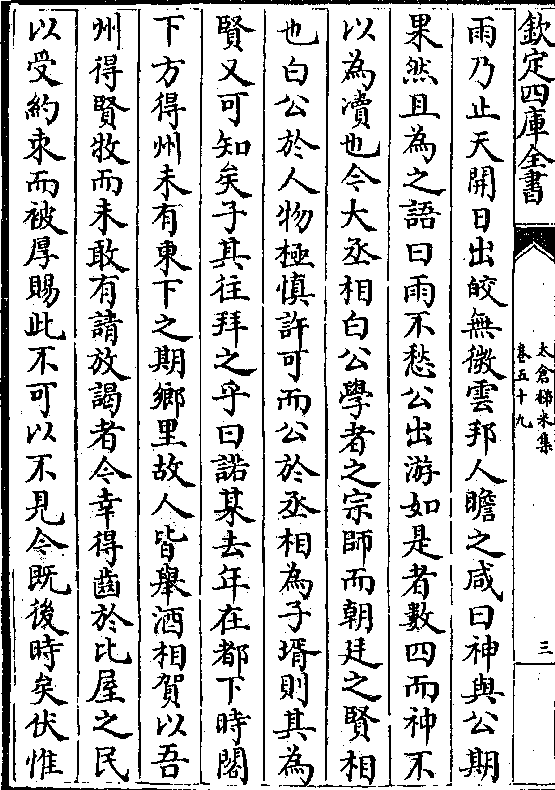 欽定四庫全書
太倉稊米集
卷五十九
三
雨乃止天開日出皎無微雲邦人瞻之咸曰神與公期
果然且為之語曰雨不愁公出游如是者數四而神不
以為凟也今大丞相白公學者之宗師而朝廷之賢相
也白公於人物極慎許可而公於丞相為子壻則其為
賢又可知矣子其往拜之乎曰諾某去年在都下時閣
下方得州未有東下之期鄉里故人皆舉酒相賀以吾
州得賢牧而未敢有請放謁者今幸得齒於比屋之民
以受約束而被厚賜此不可以不見今既後時矣伏惟